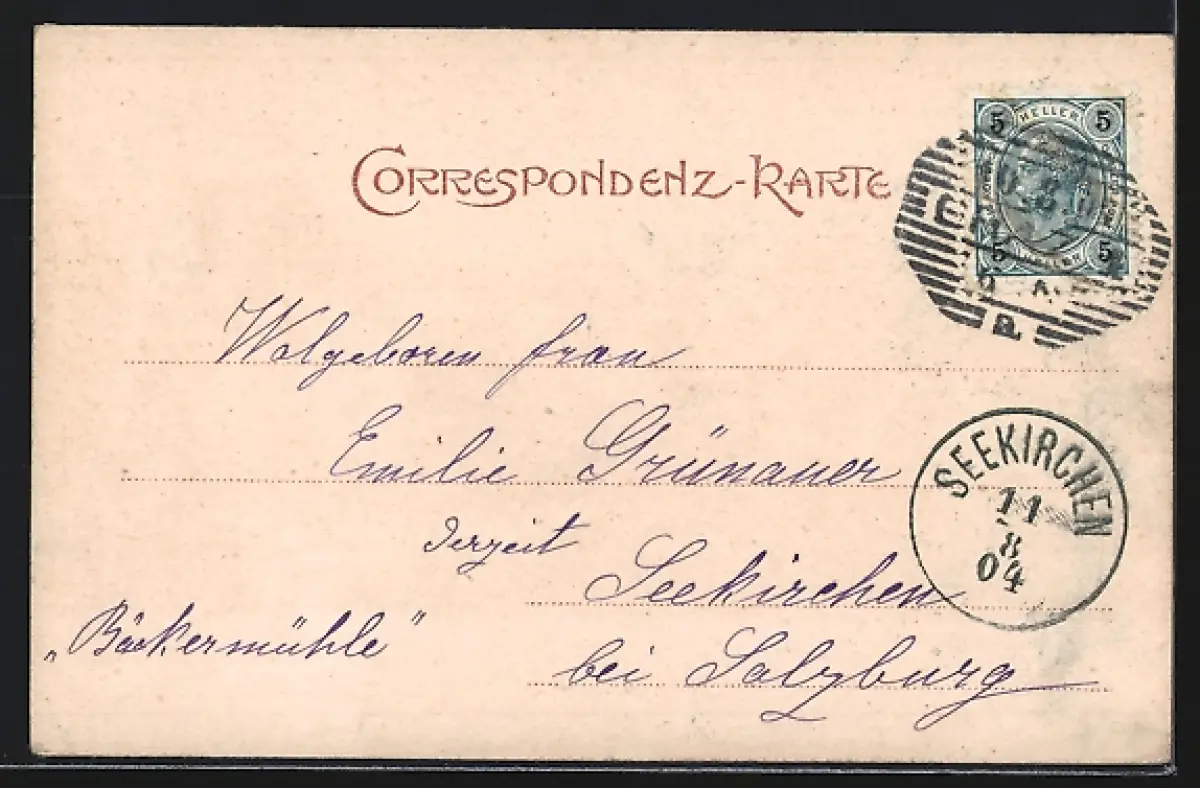 CORRESPONDENZ-KARTE
5 HELLER 5
5 HELLER 5
Wolgeboren frau
Emilie Grünauer
derzeit
Seekirchen
„Bäckermühle"
bei Salzburg
SEEKIRCHEN
11
8
04